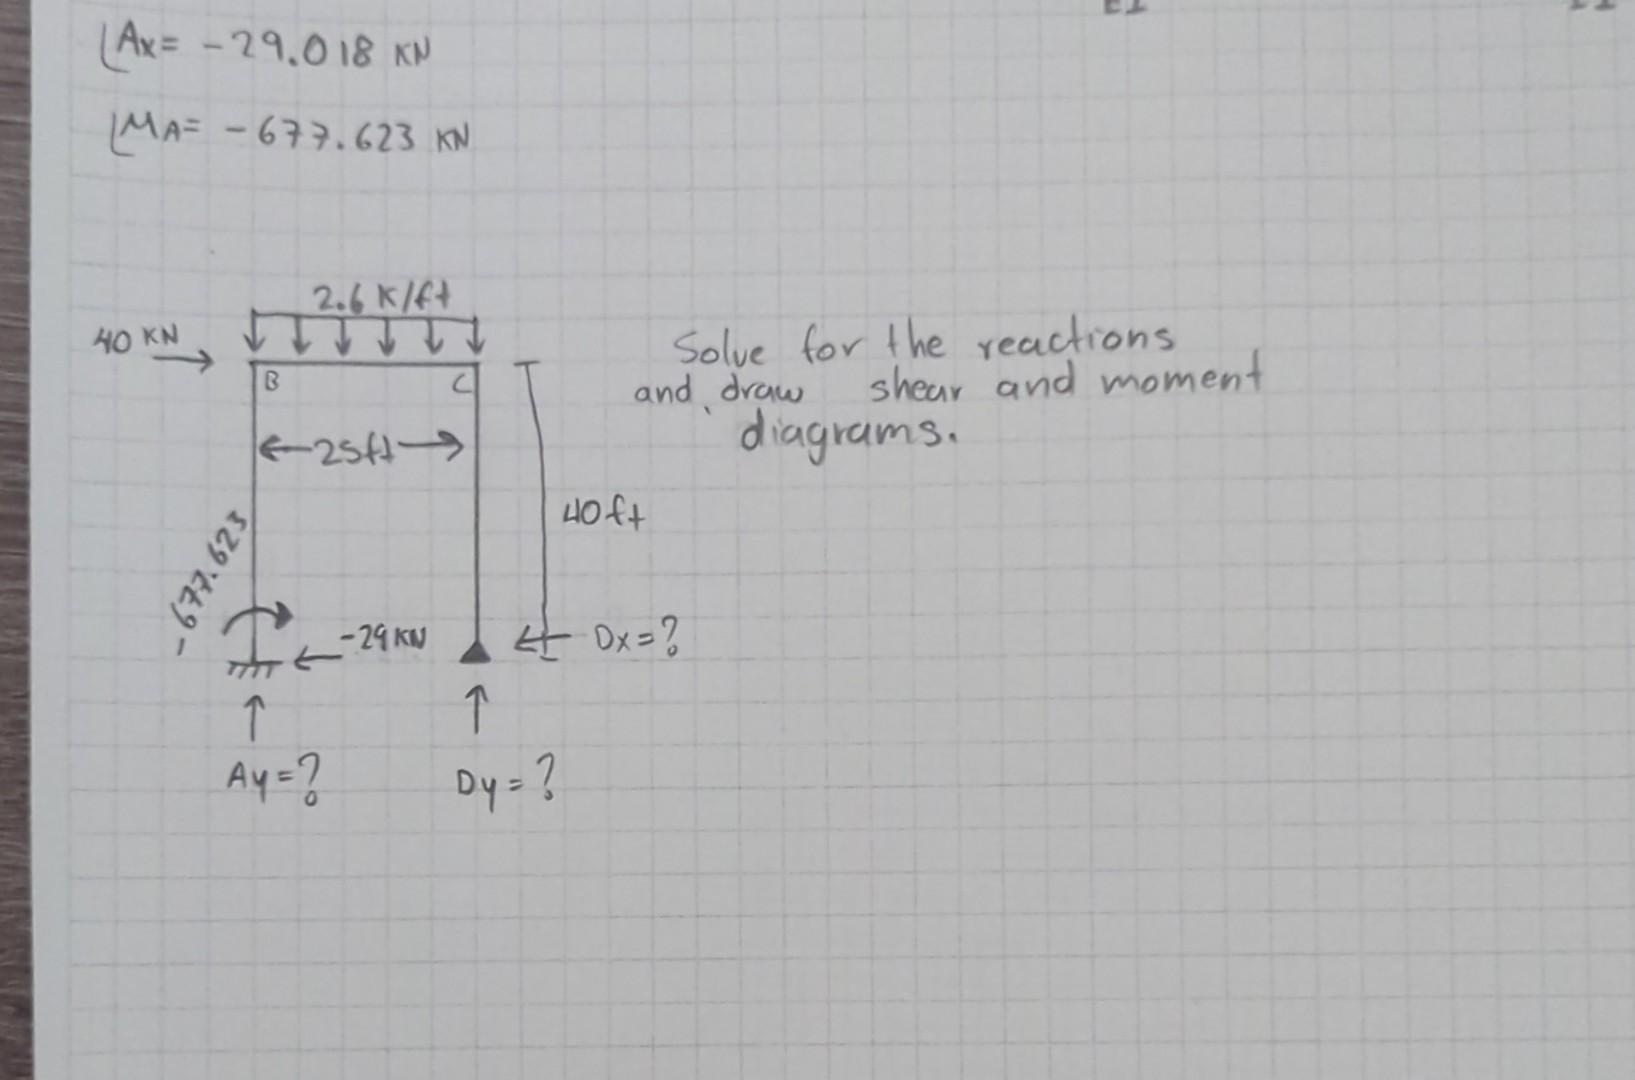 Ax= -29.018 KN
MA= -677.623 KN
2.6 K/ft
40 KN
B
C
Solve for the reactions
and draw shear and moment
diagrams.
25ft
40ft
-677.623
-29KN
Dx=?
Ay=?
Dy=?